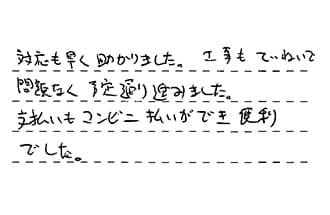 対応も早く助かりました。工事もていねいで
問題なく予定通り進みました。
支払いもコンビニ払いができ便利
でした。